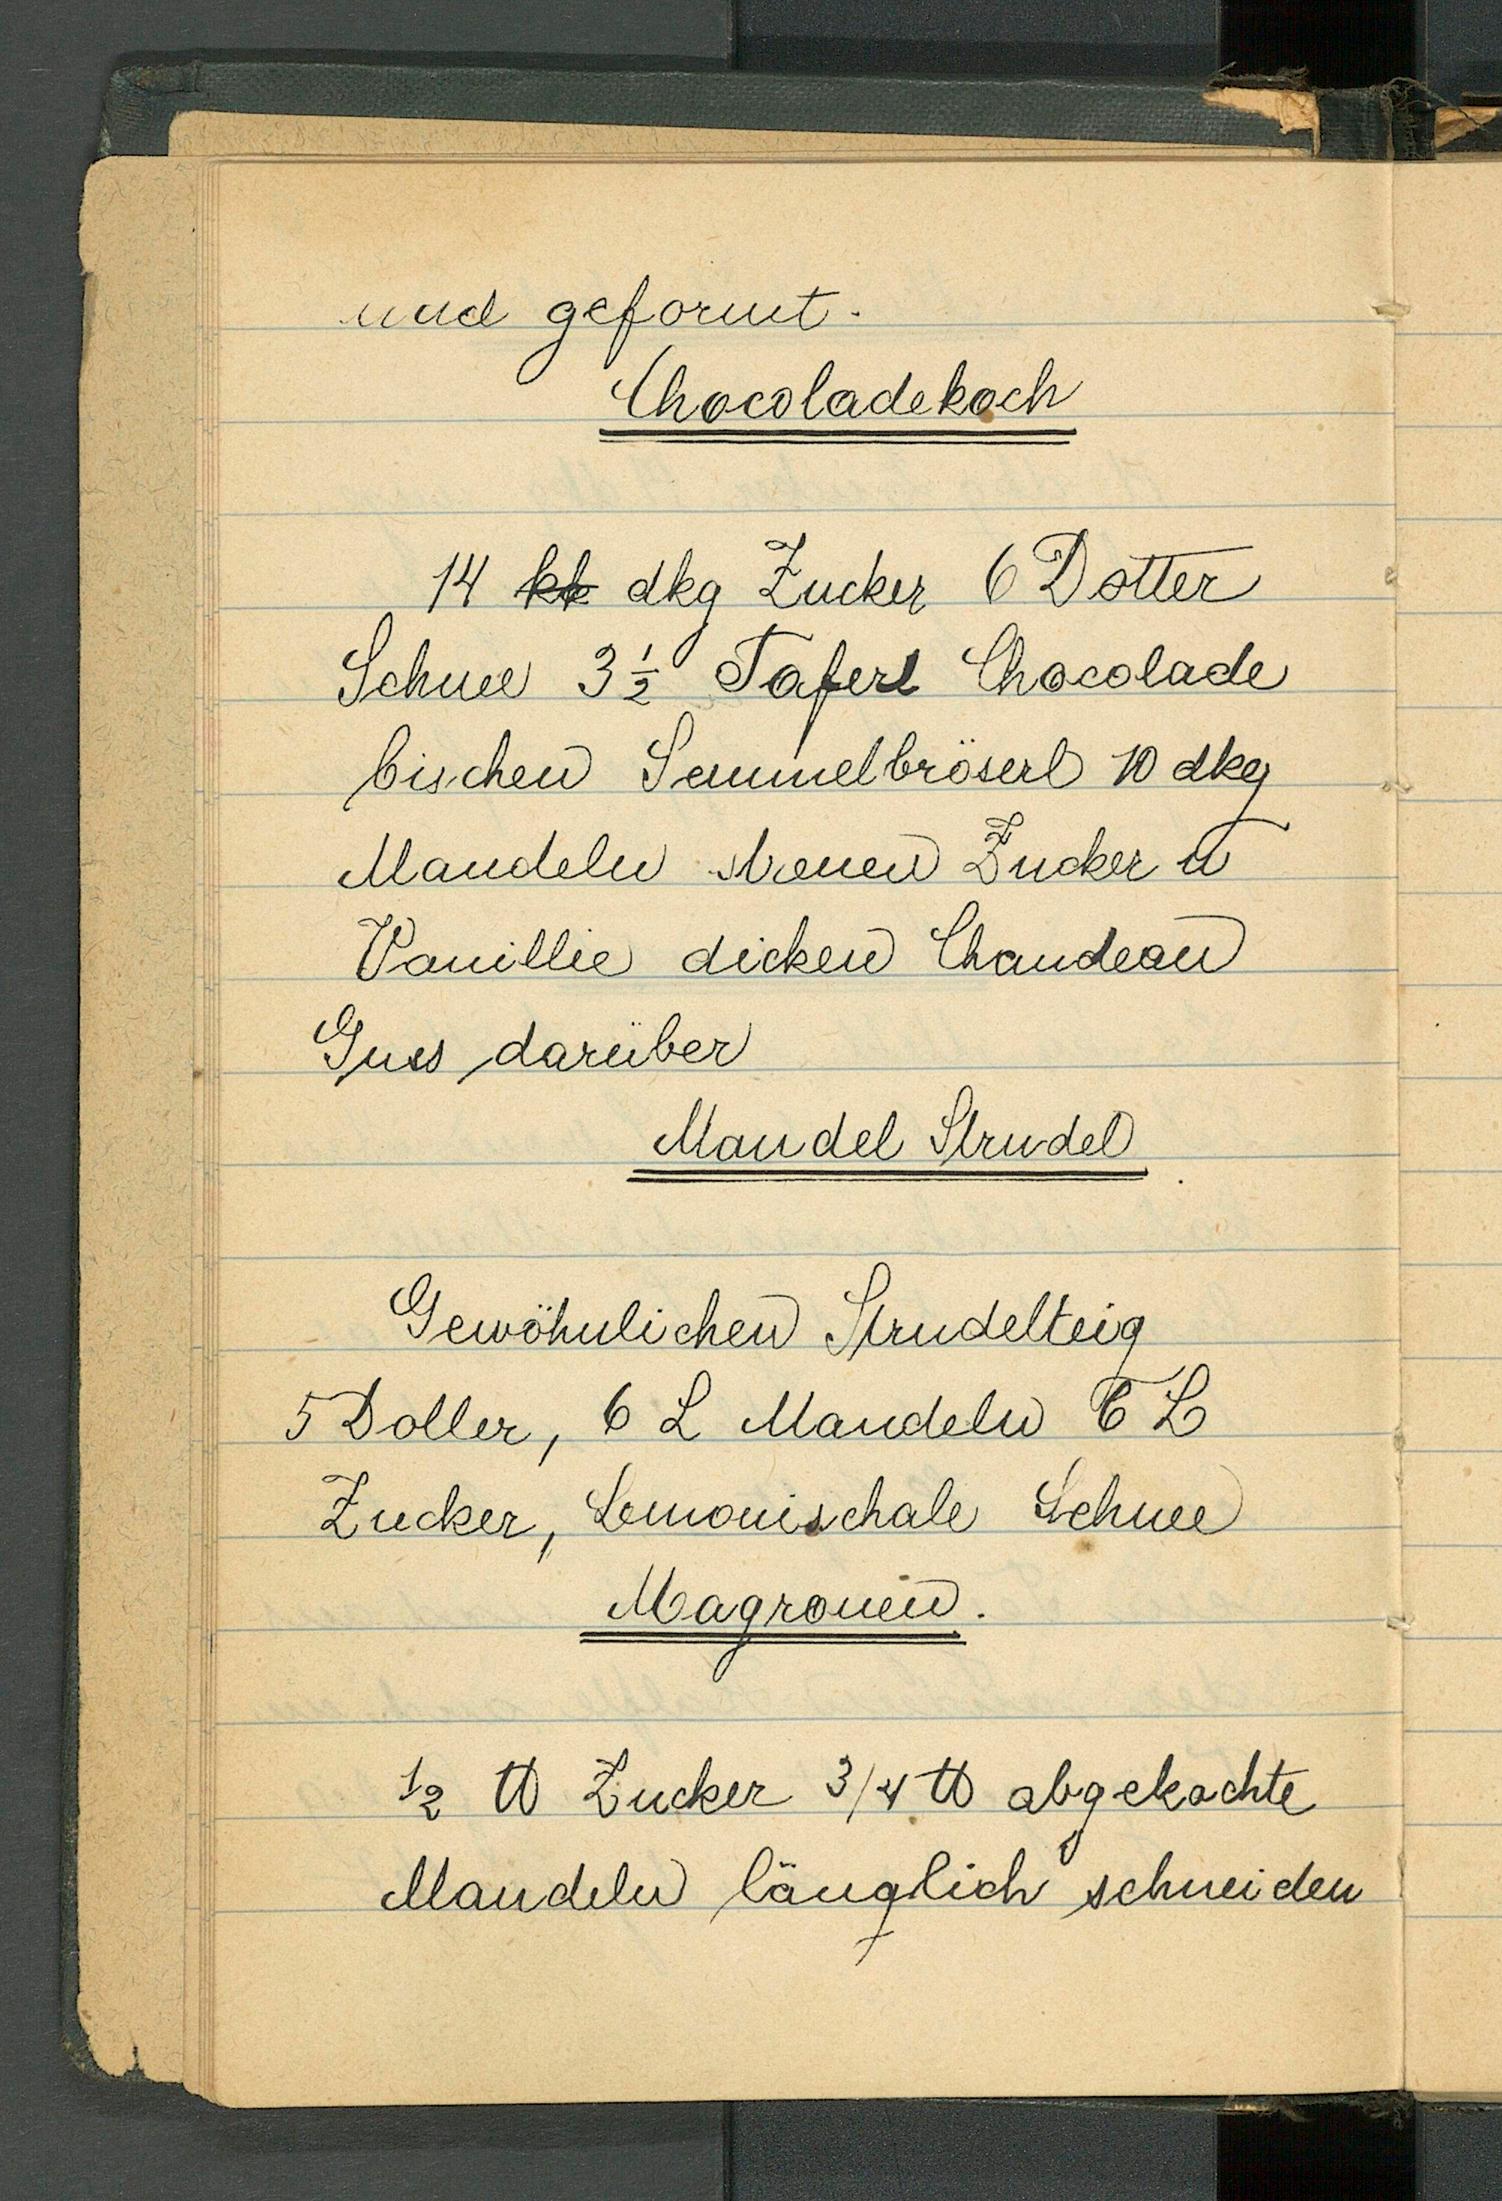 und geformt.
Chocoladekoch
14 kk dkg Zucker 6 Dotter
Schnee 3 1/2 Taferl Chocolade
bischen Semmelbröserl 10 dkg
Mandeln streuen Zucker u
Vanillie dicken Chaudeau
Guss darüber
Mandel Strudel
Gewöhnlichen Strudelteig
5 Dotter, 6 L Mandeln 6 L
Zucker, Lemonischale Schnee
Magronen.
1/2 ℔ Zucker 3/4 ℔ abgekochte
Mandeln länglich schneiden